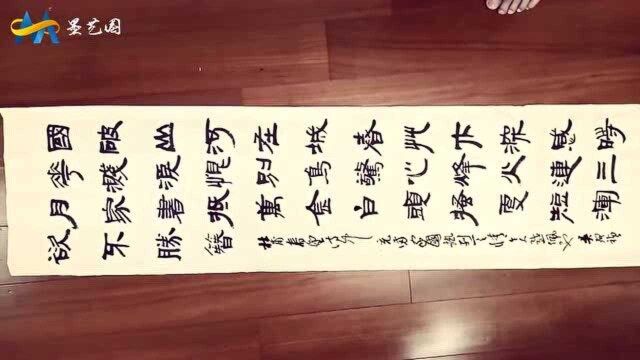 墨艺图
國破山河在城春艸木深感時
花濺淚恨別鳥驚心烽火連三
月家書抵萬金白頭搔更短渾
欲不勝簪
杜甫春望